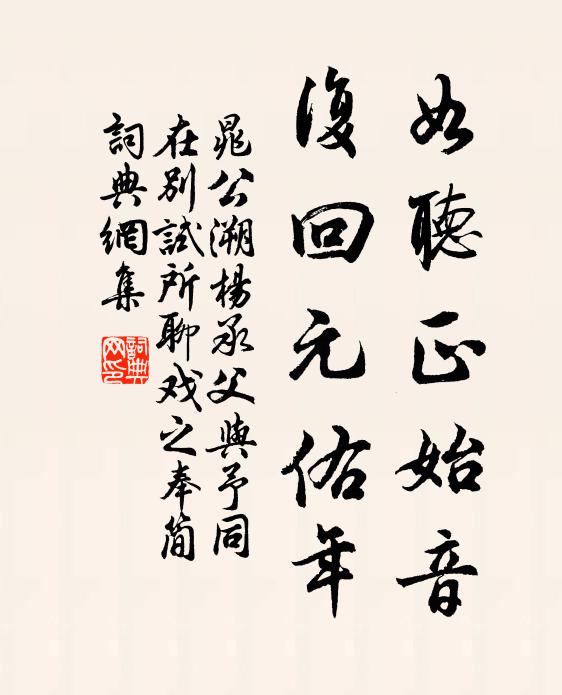 如聽正始音
復回元佑年
晁公溯楊承父與予同
在别試所聊戏之奉简
詞典網集
詞典
网印